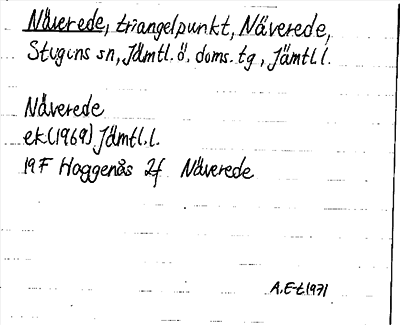 Näverede, triangelpunkt, Näverede,
Stuguns sn, Jämtl. ö. doms. tg, Jämtl.l.
Näverede
ek(1969) Jämtl.l.
19F Haggenås 2f Näverede
A.E-t.1971